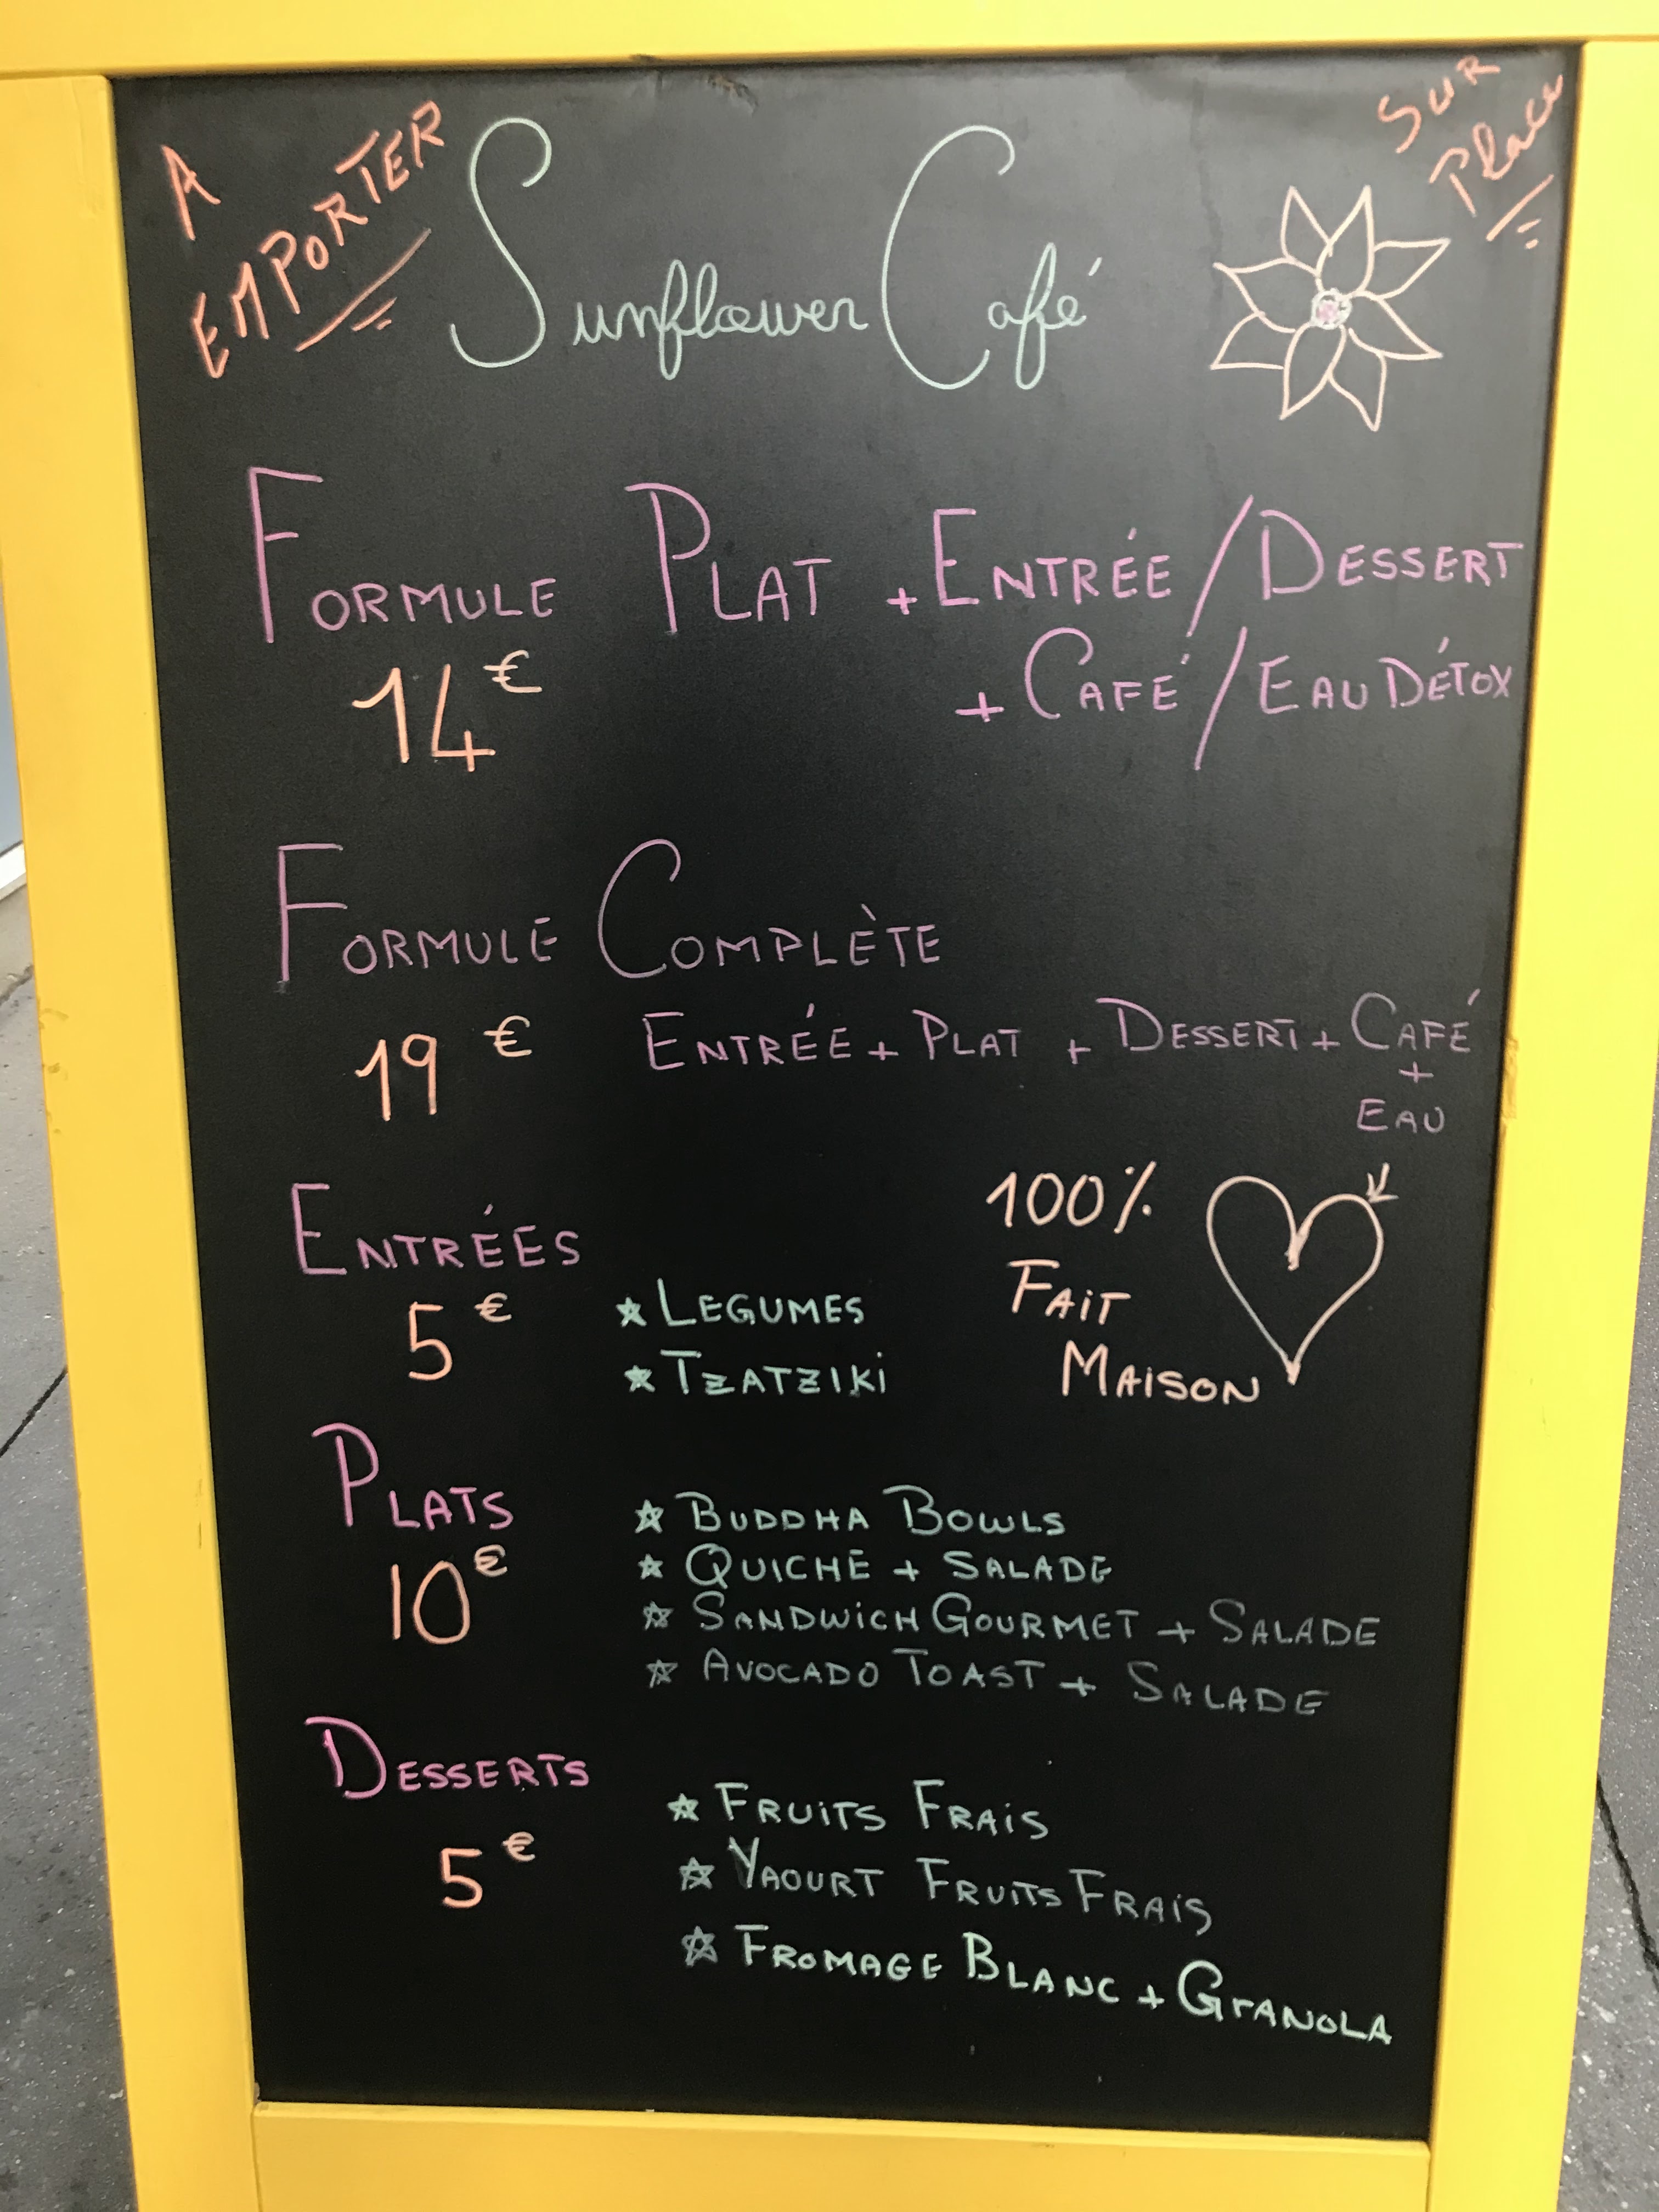 A
EMPORTER
Sunflower Café
SUR
Place
FORMULE PLAT + ENTRÉE / DESSERT
14€ + CAFÉ / EAU DÉTOX
FORMULE COMPLÈTE
19 € ENTRÉE + PLAT + DESSERT + CAFÉ
+
EAU
ENTRÉES
5€
LEGUMES
TZATZIKI
100%
FAIT
MAISON
PLATS
10€
BUDDHA BOWLS
QUICHE + SALADE
SANDWICH GOURMET + SALADE
AVOCADO TOAST + SALADE
DESSERTS
5€
FRUITS FRAIS
YAOURT FRUITS FRAIS
FROMAGE BLANC + GRANOLA